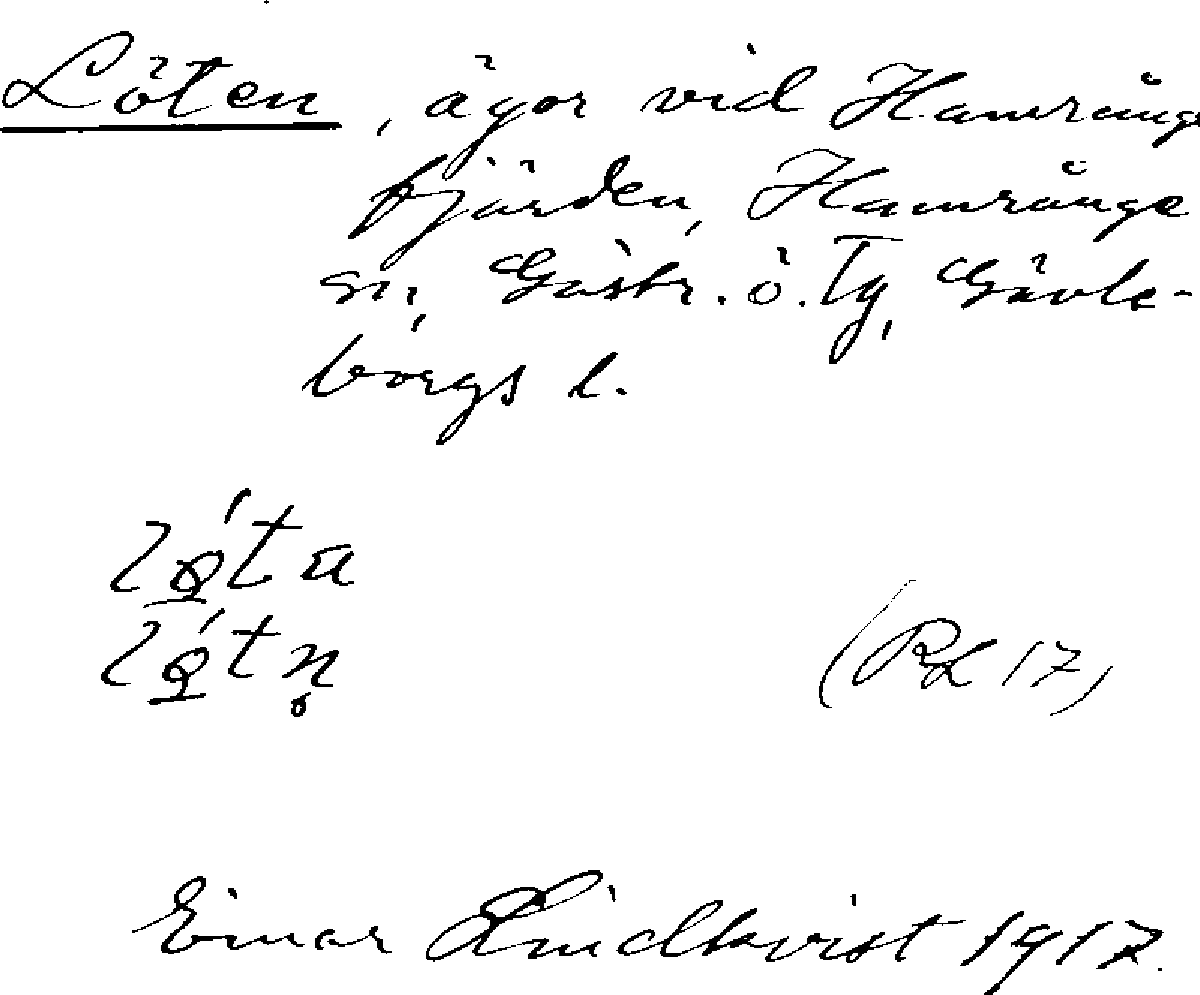 Löten, ägor vid Hamrånge
fjärden, Hamrånge
sn, Gästr. ö. Tg, Gävle-
borgs l.
lǿ̨ta
lǿ̨tn̥
(RL 17)
Einar Lindkvist 1917.